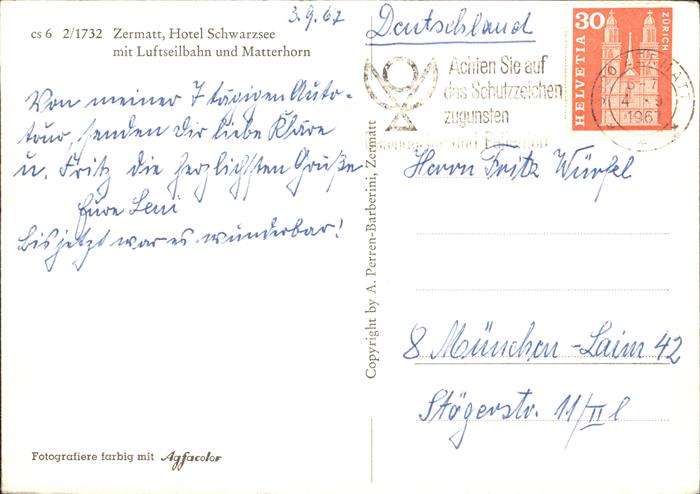 3.9.67
cs 6 2/1732 Zermatt, Hotel Schwarzsee
mit Luftseilbahn und Matterhorn
Von meiner 7 tägigen Auto-
tour, senden Dir liebe Kläre
u. Fritz die herzlichsten Grüße
Eure Leni
Bis jetzt war es wunderbar!
Fotografiere farbig mit Agfacolor
Copyright by A. Perren-Barberini, Zermatt
Deutschland
Achten Sie auf
das Schutzzeichen
zugunsten
und
30
HELVETIA
ZÜRICH
ZERMATT
1967
Herrn Fritz Würfel
8 München-Laim 42
Stögerstr. 11/II l